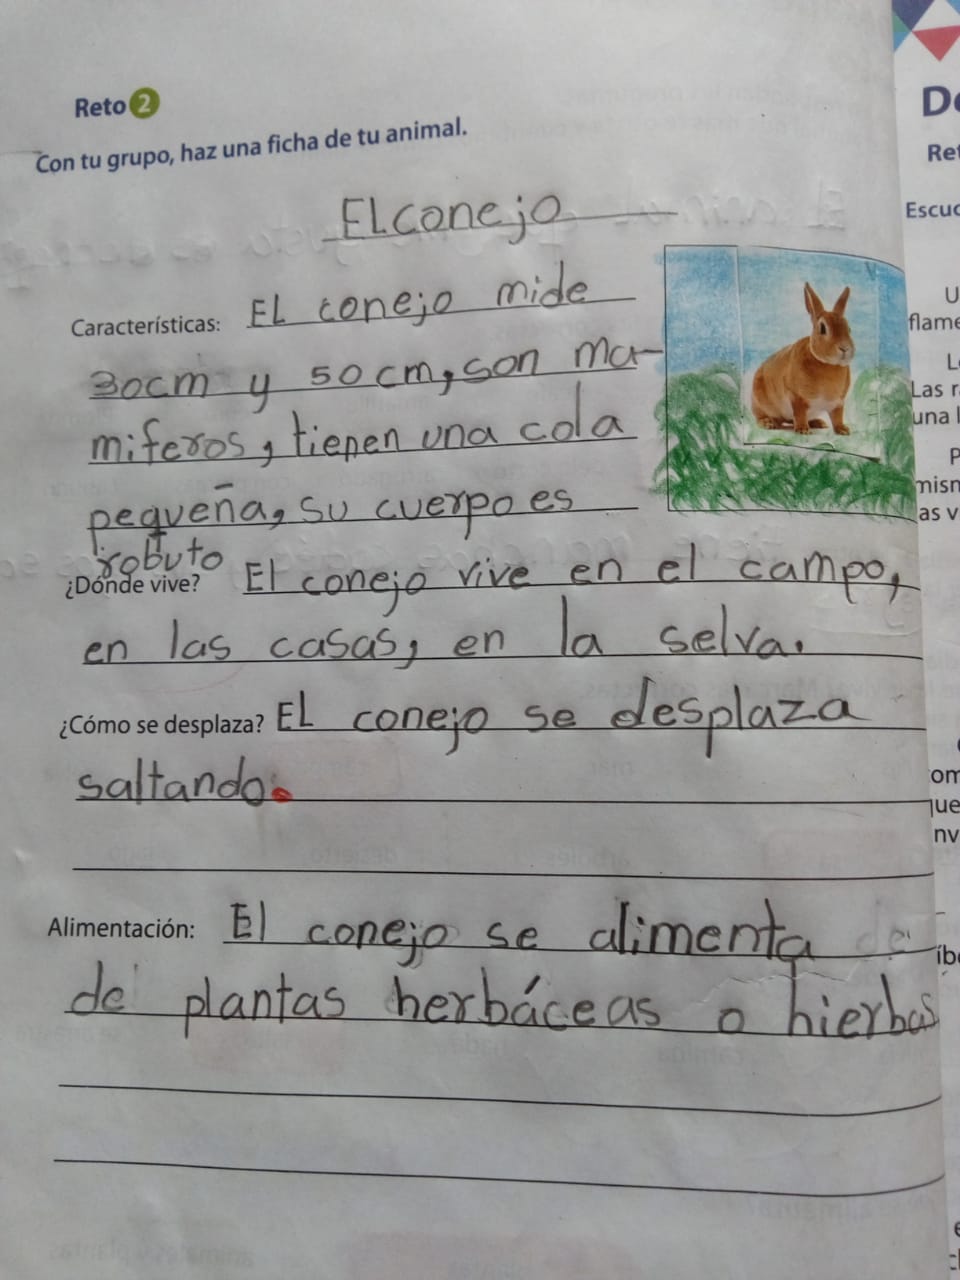 Reto 2
Con tu grupo, haz una ficha de tu animal.
El conejo
Características: El conejo mide
30cm y 50cm, son ma-
miferos, tienen una cola
pequeña, su cuerpo es
robuto
¿Dónde vive? El conejo vive en el campo,
en las casas, en la selva.
¿Cómo se desplaza? El conejo se desplaza
saltando.
Alimentación: El conejo se alimenta
de plantas herbáceas o hierbas
Escuc
flame
Las r
una l
as v